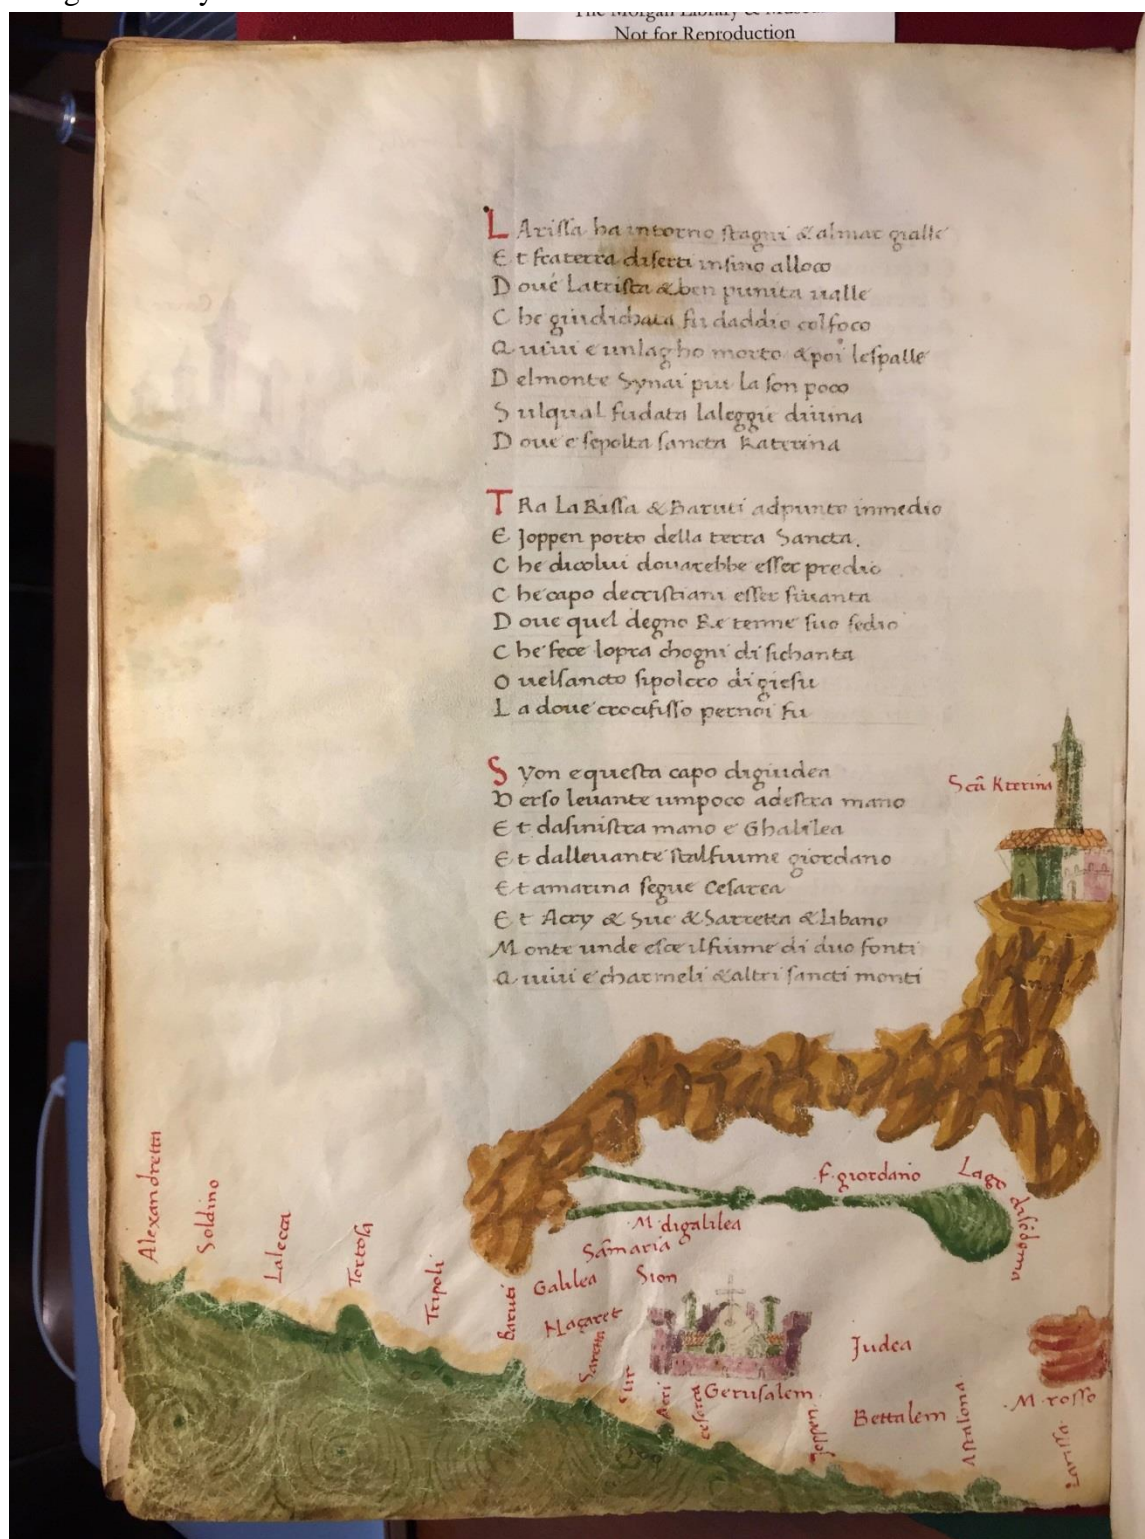 Not for Reproduction
L Arissa ha intorno stagni & almar gialle
E t fraterra diserti insino alloco
D ove Latrista & ben punita valle
C he giudichata fu daddio colfoco
Q uivi e unlagho morto & poi lespalle
D elmonte Synai piu la son poco
S ulqual fudata laleggie divina
D ove e sepolta sancta Katerina
T Ra La Rissa & Baruti adpunto inmedio
E Joppen porto della terra Sancta.
C he dicolui dovarebbe esser predio
C he capo decristiani esser sivanta
D ove quel degno Re tenne suo sedio
C he fece lopra chogni di sichanta
O velsancto sipolcro di giesu
L a dove crocifisso pernoi fu
S yon e questa capo digiudea
V erso levante umpoco adestra mano
E t dasinistra mano e Ghalilea
E t dallevante stalfiume giordano
E t amarina segue Cesarea
E t Acry & Sue & Sarretta & Libano
M onte unde esce ilfiume di duo fonti
Q uivi e charmeli & altri sancti monti
Scã Kterina
F. giordano
Lago disodoma
M digalilea
Samaria
Galilea
Sion
Naçaret
Alexandretta
Soldino
Lalecca
Tortosa
Tripoli
Baruti
Saretta
Sur
Acri
Cesarea
Gerusalem
Joppen
Judea
Bettalem
Astalona
M rosso
Larissa